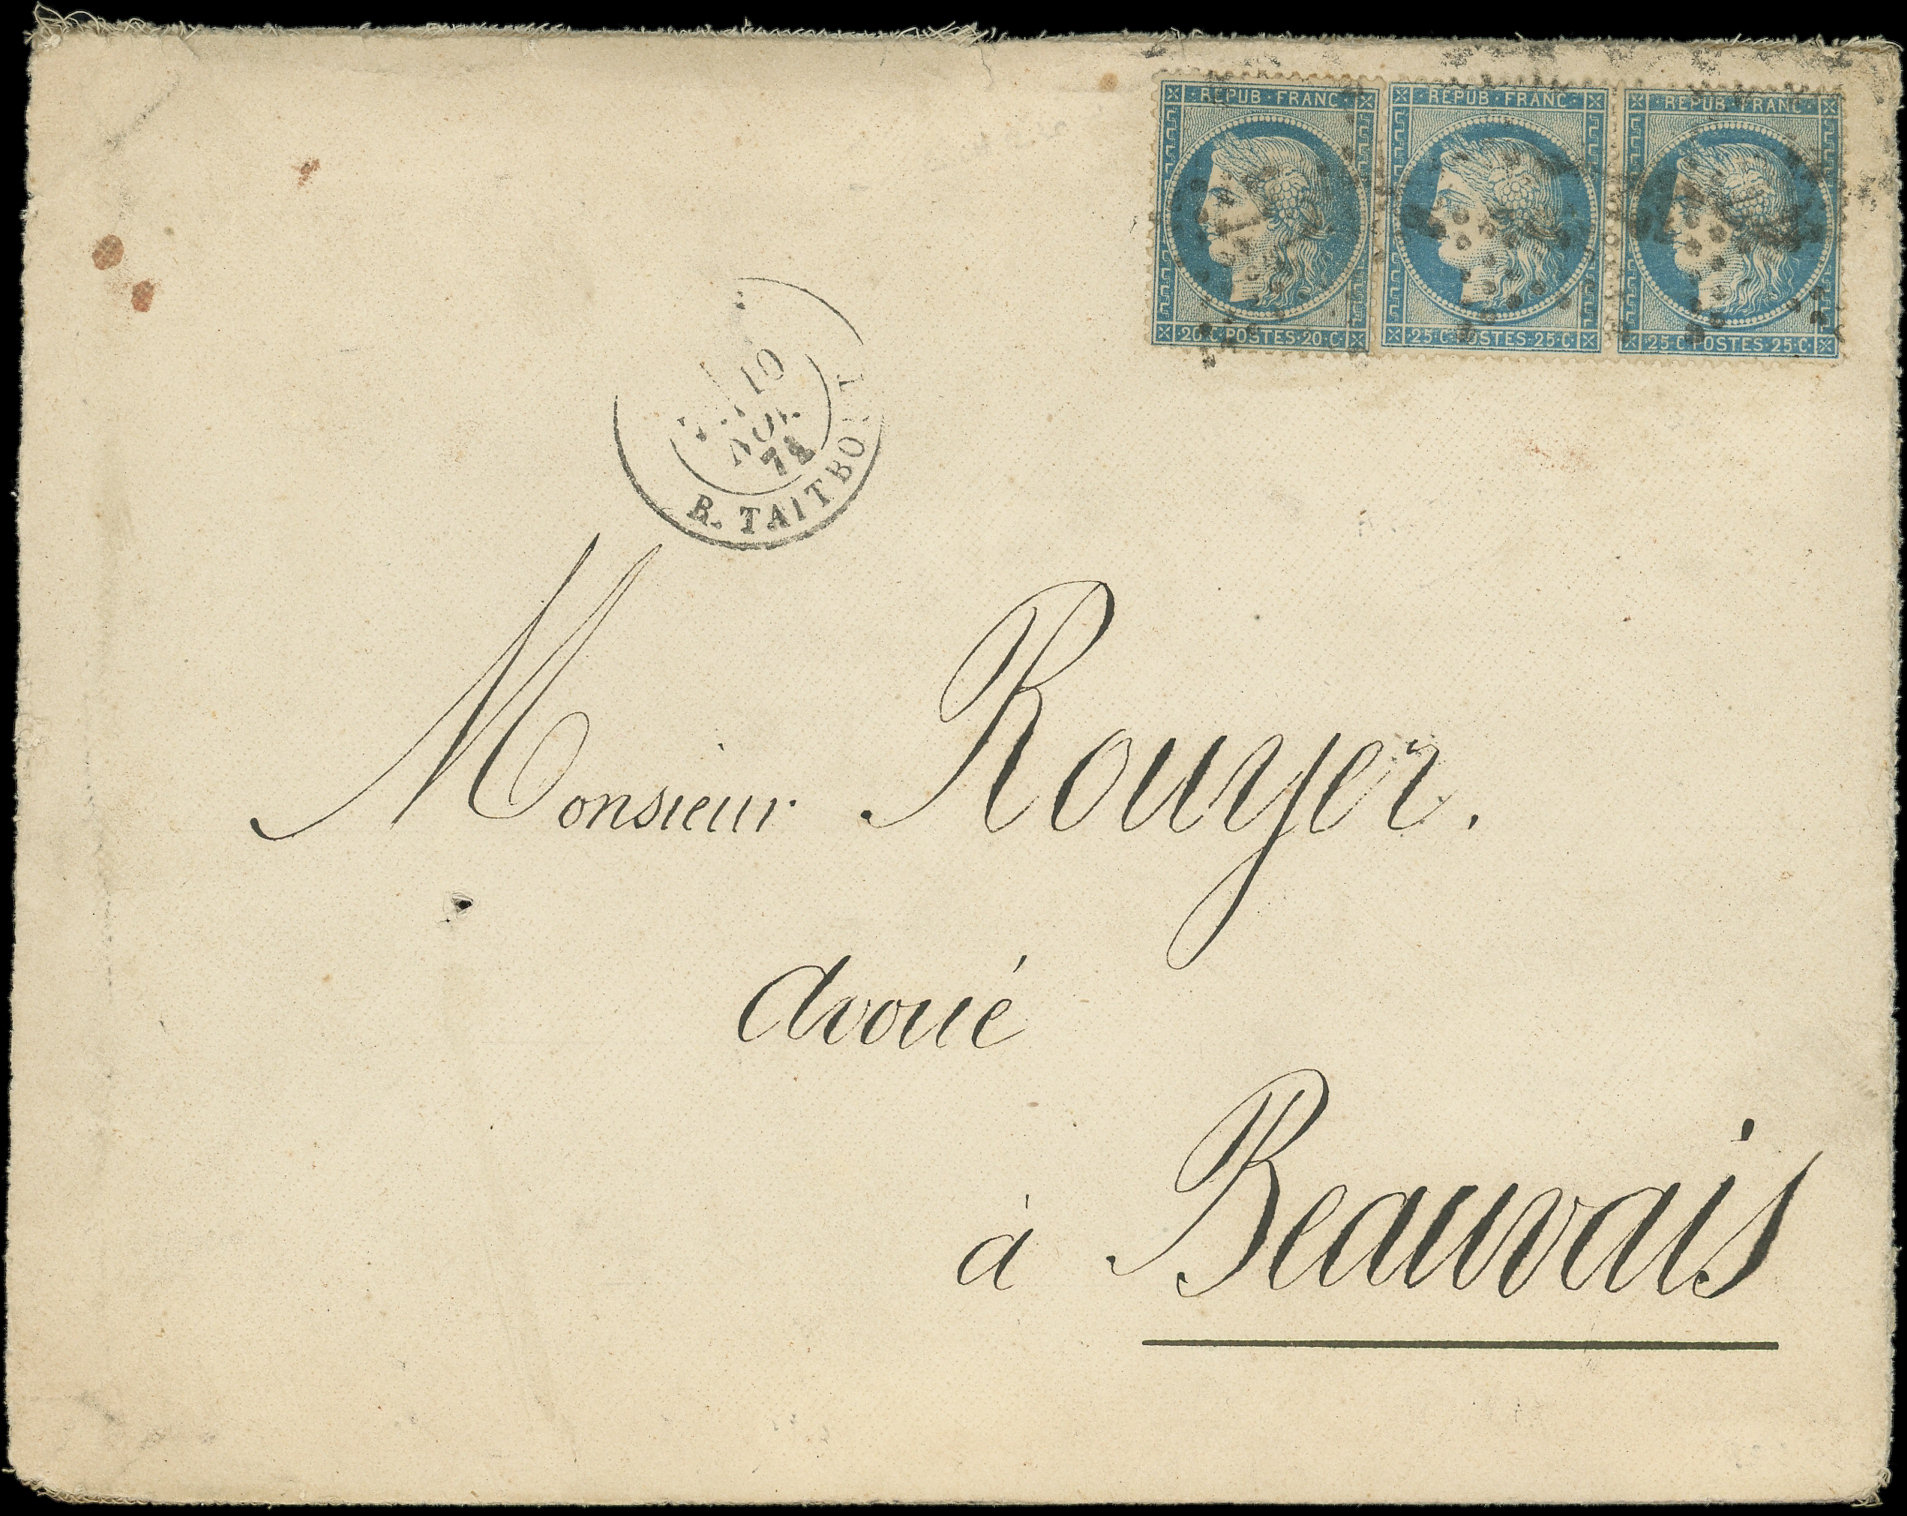 REPUB·FRANC REPUB·FRANC REPUB·FRANC
20·C·POSTES·20·C 25·C·POSTES·25·C 25·C·POSTES·25·C
10
R. TAITBOUT
Monsieur Rouyer.
Avoué
à Beauvais